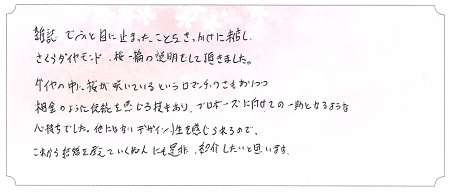 雑誌でふと目に止まったことをきっかけに来店し、
さくらダイヤモンド、桜一輪の説明をして頂きました。
ダイヤの中に桜が咲いているというロマンチックさもありつつ
のような伝統を感じる技もあり、プロポーズに向けての一助となるような
心持ちでした。他にはないデザイン性を感じられるので、
これから結婚を考えていく友人にも是非、紹介したいと思います。